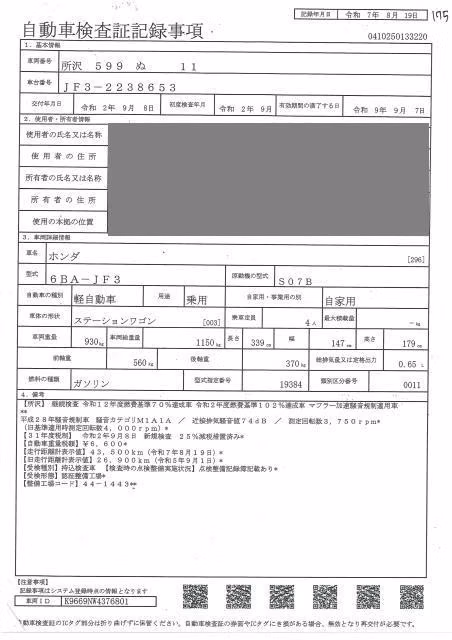 記録年月日 令和 7年 8月 19日
175
自動車検査証記録事項
0410250133220
1．基本情報
車両番号 所沢 599 ぬ 11
車台番号 JF3-2238653
交付年月日 令和 2年 9月 8日 初度検査年月 令和 2年 9月 有効期間の満了する日 令和 9年 9月 7日
2．使用者・所有者情報
使用者の氏名又は名称
使用者の住所
所有者の氏名又は名称
所有者の住所
使用の本拠の位置
3．車両詳細情報
車名 ホンダ [296]
型式 6BA-JF3 原動機の型式 S07B
自動車の種別 軽自動車 用途 乗用 自家用・事業用の別 自家用
車体の形状 ステーションワゴン [003] 乗車定員 4人 最大積載量 -kg
車両重量 930kg 車両総重量 1150kg 長さ 339cm 幅 147cm 高さ 179cm
前軸重 560kg 後軸重 370kg 総排気量又は定格出力 0.65 L
燃料の種類 ガソリン 型式指定番号 19384 類別区分番号 0011
4．備考
【所沢】 継続検査 令和12年度燃費基準70%達成車 令和2年度燃費基準102%達成車 マフラー加速騒音規制適用車
**
平成28年騒音規制車 騒音カテゴリM1A1A ／ 近接排気騒音値74dB ／ 測定回転数3,750rpm*
(旧基準適用時測定回転数4,000rpm)*
【31年度税制】 令和2年9月8日 新規検査 25%減税措置済み*
【自動車重量税額】¥6,600*
【走行距離計表示値】43,500km(令和7年8月19日)*
【旧走行距離計表示値】26,900km(令和5年9月1日)*
【受検種別】持込検査車 【検査時の点検整備実施状況】点検整備記録簿記載あり*
【受検形態】認証整備工場*
【整備工場コード】44-1443**
【注意事項】
記録事項はシステム登録時点の情報となります
車両ID K9669NW4376801
自動車検査証のICタグ部分は折り曲げずに保管ください。自動車検査証の券面やICタグにき損がある場合、無効となり再交付が必要です。